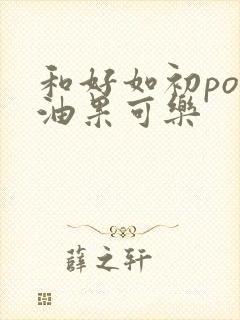 和好如初po
油果可樂
薛之轩